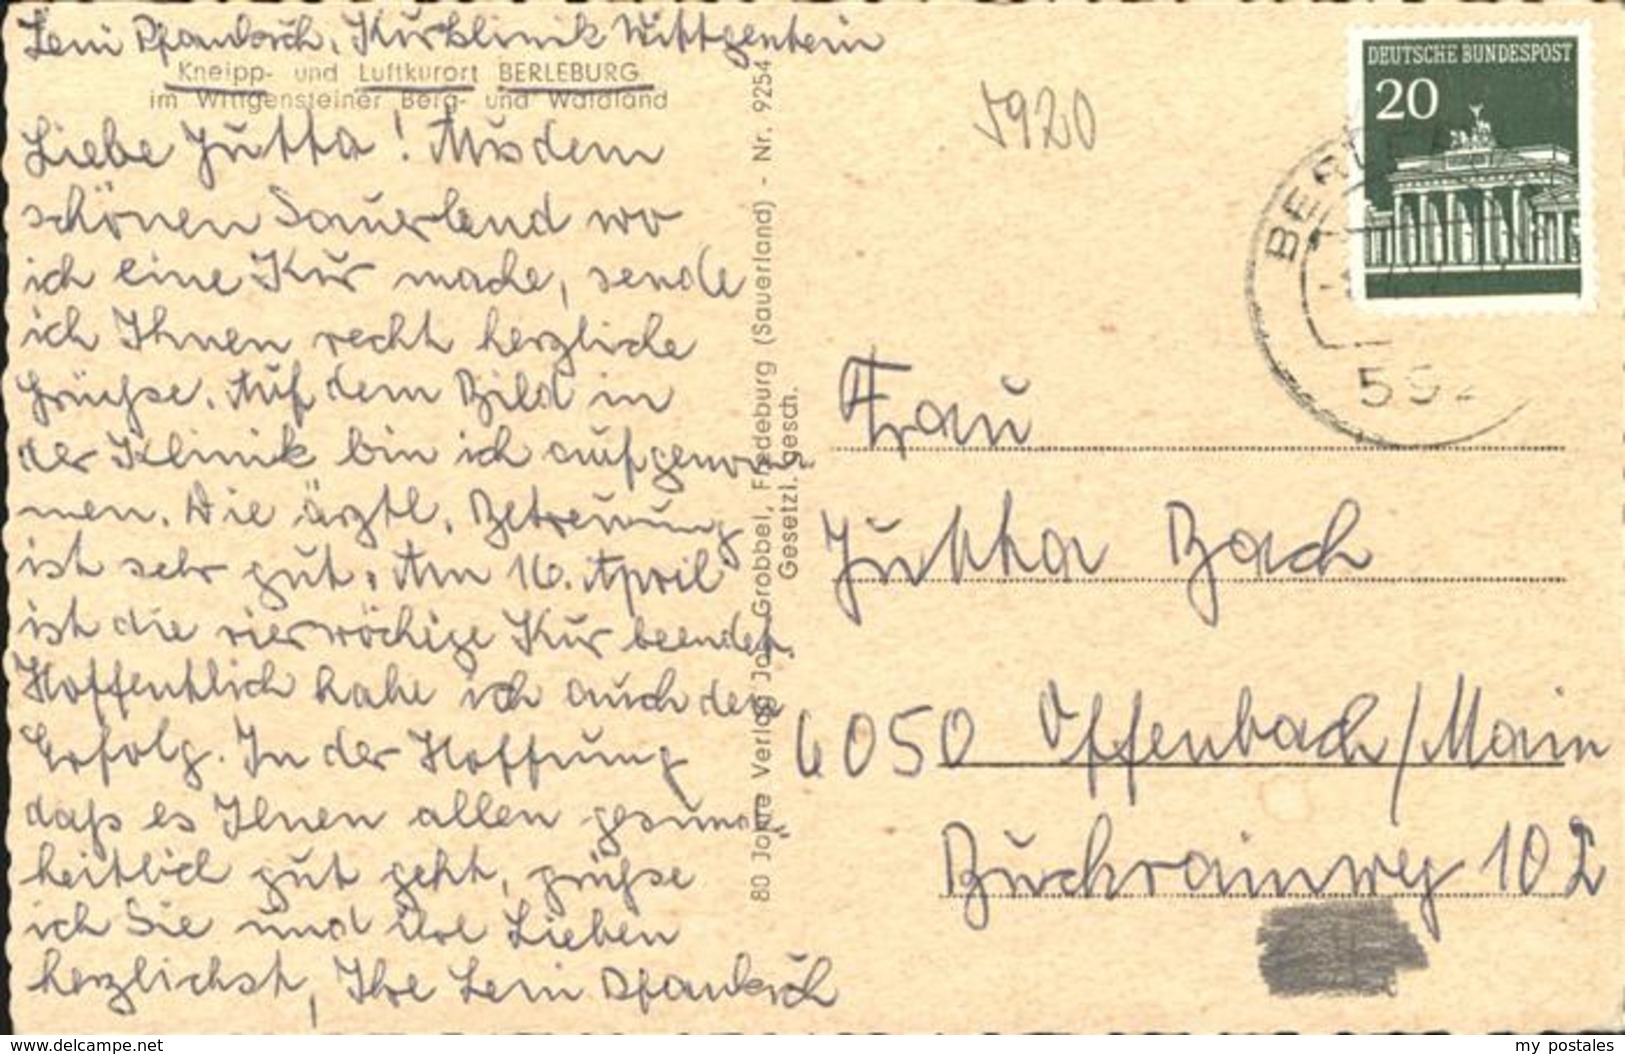 Leni Pfankuch, Kurklinik Wittgenstein
Kneipp- und Luftkurort BERLEBURG
im Wittgensteiner Berg- und Waldland
Liebe Jutta! Aus dem
schönen Sauerland wo
ich eine Kur mache, sende
ich Ihnen recht herzliche
Grüße. Auf dem Bild in
der Klinik bin ich aufgenom
men. Die ärztl. Betreuung
ist sehr gut. Am 16. April
ist die vierwöchige Kur beendet.
Hoffentlich habe ich auch den
Erfolg. In der Hoffnung
daß es Ihnen allen gesund-
heitlich gut geht, grüße
ich Sie und Ihre Lieben
herzlichst, Ihre Leni Pfankuch
80 Jahre Verlag Grobbel, Fredeburg (Sauerland) - Nr. 9254
Gesetzl. gesch.
5920
DEUTSCHE BUNDESPOST
20
BERLE
592
Frau
Jutta Bach
6050 Offenbach/Main
Buchrainweg 102
www.delcampe.net
my postales